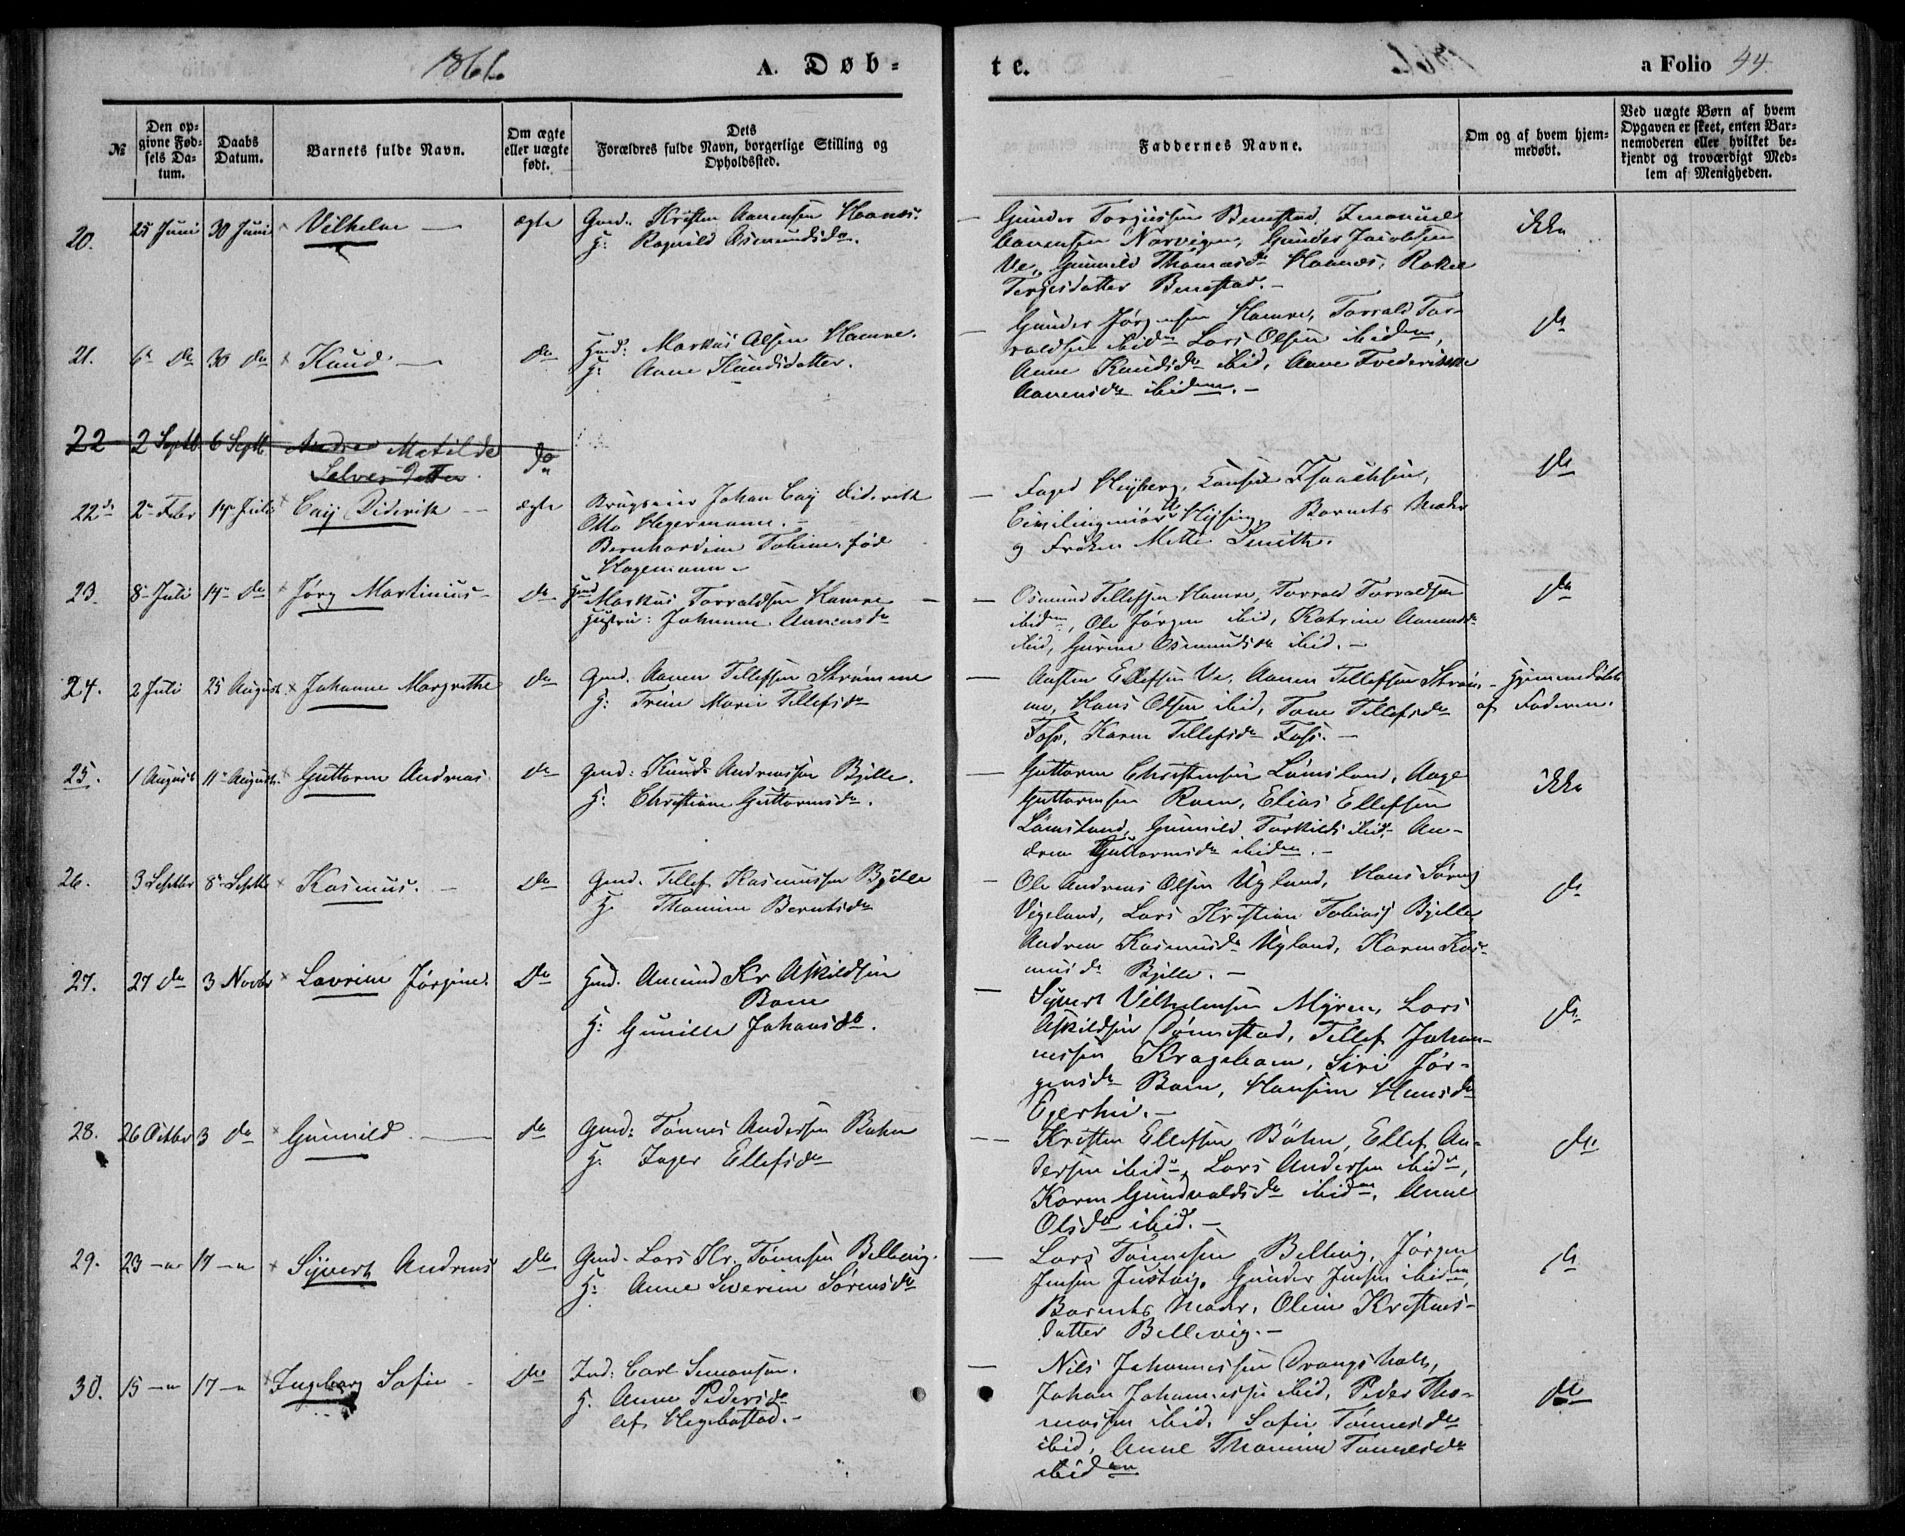 A. Døb-
te.
a Folio 44.
№
Den op-
givne Fød-
sels Da-
tum.
Daabs
Datum.
Barnets fulde Navn.
Om ægte
eller uægte
født.
Dets
Forældres fulde Navn, borgerlige Stilling og
Opholdssted.
Faddernes Navne.
Om og af hvem hjem-
medøbt.
Ved uægte Børn af hvem
Opgaven er skeet, enten Bar-
nemoderen eller hvilket be-
kjendt og troværdigt Med-
lem af Menigheden.
20. 25 Juni 30 Juni Vilhelm ægte Gmd. Kristen Aanensen Haanes.
H: Ragnild Osmundsdr.
Gunder Torjussen Benestad, Emanuel
Aanensen Narvigen, Gunder Jacobsen
Ve, Gunnild Thomasdr Haanæs, Rakel
Terjesdatter Benestad.
ikke
21. 6 do 30 do Knud do Hmd: Markus Olsen Hamre.
H: Anne Knudsdatter.
Gunder Jørgensen Hamre, Torvald Tor-
valdsen ibidem, Lars Olsen ibidem,
Anne Knudsdr ibid, Anne Frederikke
Aanensdr ibidem.
do
22 2 Septb. 6 Septb Andrea Matilde
Selvesdatter do
22 2 Febr 14 Juli Caij Diderik ægte Brugseier Johan Caij Diderik
Otto Hegermann.
Bernhardine Tobine, fød
Hagemann
Foged Heyberg, Isaachsen,
Civilingeniør Heysing, Barnets Moder
og Frøken Mette Smith.
do
23 8 Juli 14 do Jørg Martinius do Hmd Markus Torvaldsen Hamre
Hustru: Johanne Aanensdr
Osmund Tellefsen Hamre, Torvald Torvaldsen
ibidem, Ole Jørgen ibid, Katrine Aanensdr
ibid, Gurine Osmundsdr ibid.
do
24. 2 Juli 25 August Johanne Margrethe do Gmd. Aanen Tellefsen Strømme
H: Trine Marie Tellefsdr
Aasten Ellefsen Ve, Aanen Tellefsen Strøm-
me, Hans Olsen ibid, Tone Tellefsdr
Foss, Karen Tellefsdr Foss.
Hjemmedøbt
af Faderen.
25. 1 August 11 August Guttorm Andreas do Gmd: Knud Andreassen Bjelle.
H: Christiane Guttormsdr.
Guttorm Christensen Lømsland, Aage
Guttormsen Roen, Elias Ellefsen
Lømsland, Gunnild Torkilds ibid An-
drea Guttormsdr ibidem.
ikke
26. 3 Septbr 8 Septbr Rasmus. do Gmd. Tellef Rasmussen Bjelle
H. Thomine Berntsdr
Ole Andreas Olsen Ugland, Hans Søren
Vigeland, Lars Kristian Tobias Bjelle
Andrea Rasmusdr Ugland, Karen Ras-
musdr Bjelle.
do
27. 27 do 3 Novbr Lovrine Jørgine. do Hmd. Amund Kr Askildsen
Boen
H: Gunille Johansdr.
Syvert Vilhelmsen Myren, Lars
Askildsen Dønnestad, Tellef Johan-
nessen Krageboen, Siri Jør-
gensdr Boen, Hansine Hansdr
do
28. 26 Octbr 3 do Gunnild do Gmd: Tønnes Andersen Bøhn
H. Inger Ellefsdr
Kristen Ellefsen Bøhn, Ellef An-
dersen ibid, Lars Andersen ibid,
Karen Gundvaldsdr ibidem, Anne
Olsdr ibid.
do
29. 23 17 Syvert Andreas do Gmd. Lars Kr. Tønnesen Bellevig.
H: Anne Severine Sørensdr
Lars Tønnesen Bellevig, Jørgen
Jensen Justvig, Gunder Jensen ibidem,
Barnets Moder, Oline Kristens-
datter Bellevig.
do
30. 15 17 Ingeborg Sofie do Ind: Carl Simonsen.
H. Anne Pedersdr
af Hegebostad.
Nils Johannessen Drangsholt,
Johan Johannessen ibid, Peder Tho-
massen ibid, Sofie Tønnesdr
ibid, Anne Thomine Tønnesdr
ibidem
do